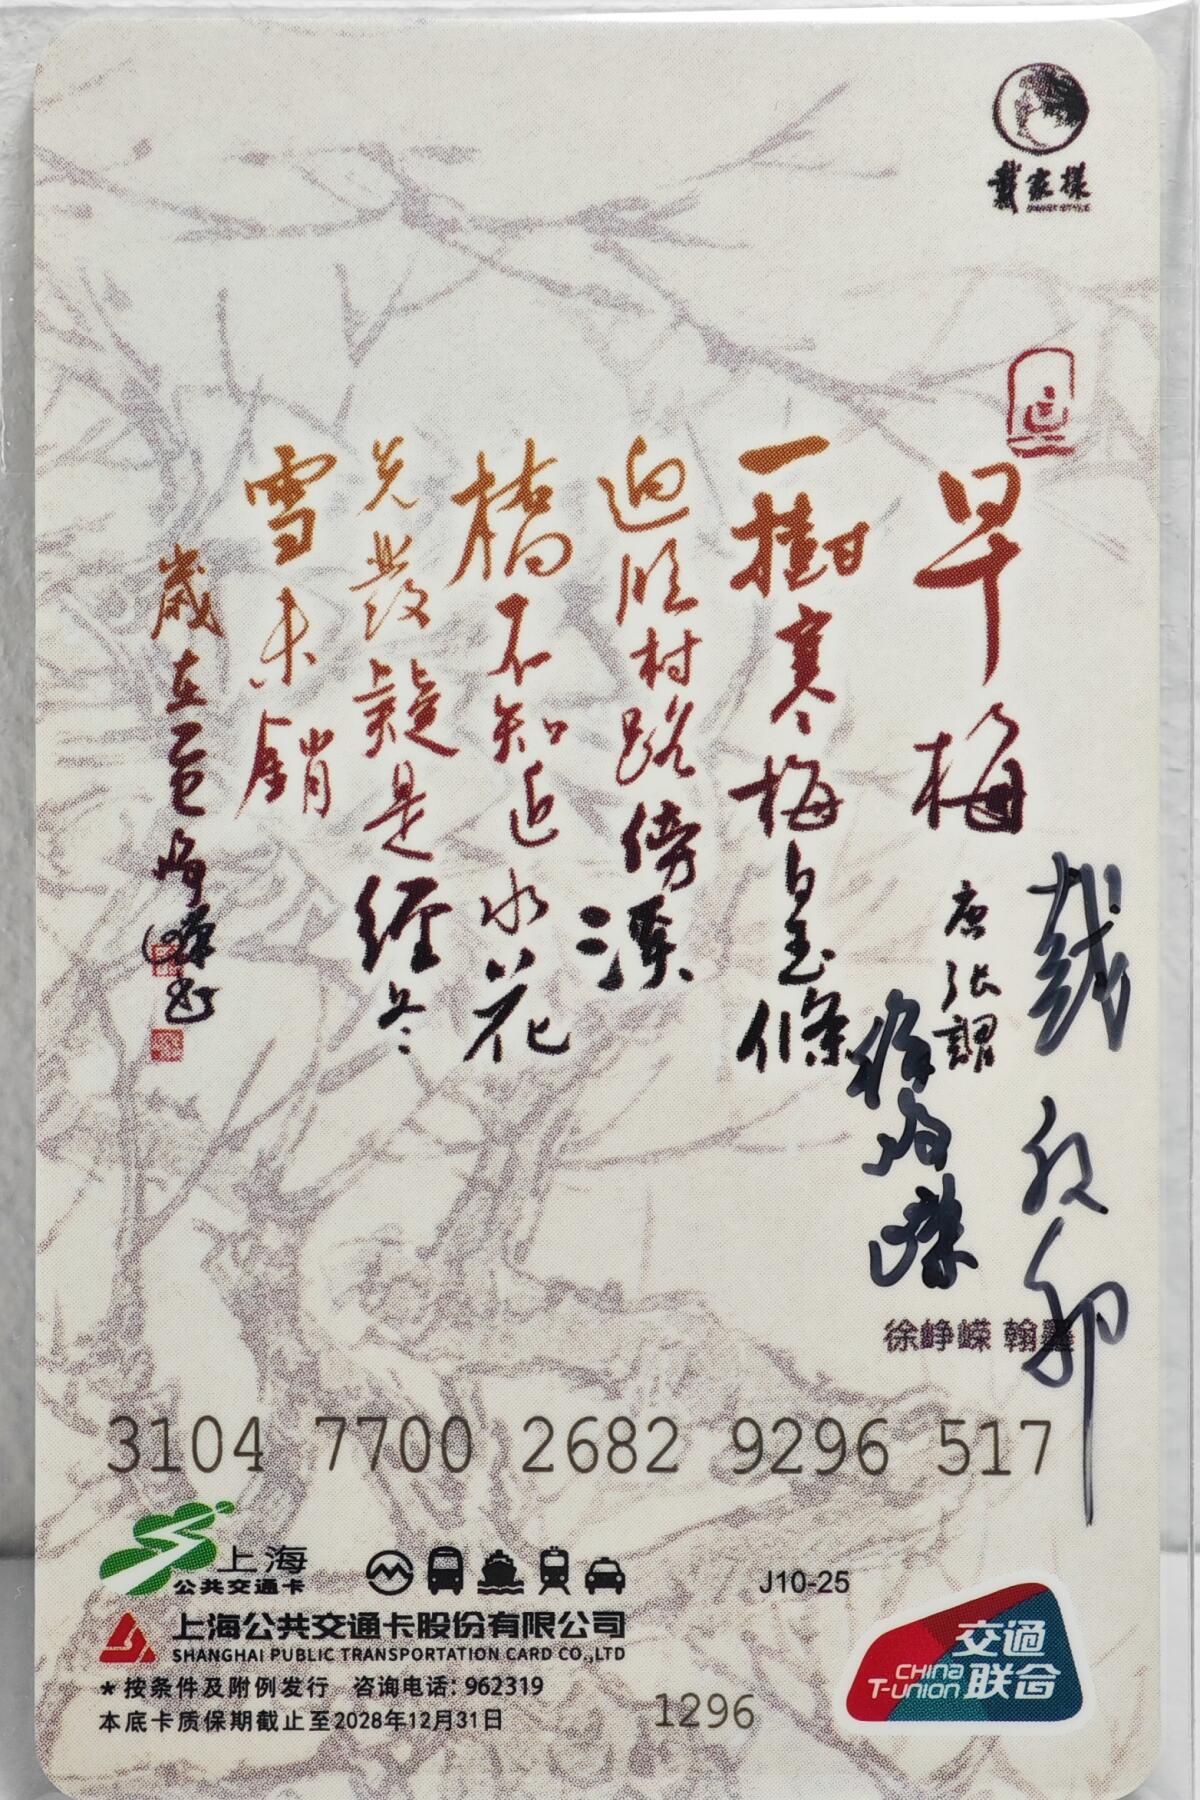 戴家樣
早梅
唐 张謂
一樹寒梅白玉條
迥临村路傍溪
橋不知近水花
先發疑是經冬
雪未銷
歲在
峥嵘书
徐峥嵘
徐峥嵘 翰墨
3104 7700 2682 9296 517
上海
公共交通卡
J10-25
上海公共交通卡股份有限公司
SHANGHAI PUBLIC TRANSPORTATION CARD CO.,LTD
*按条件及附例发行 咨询电话: 962319
本底卡质保期截止至2028年12月31日
1296
交通
联合
CHINA
T-UNION